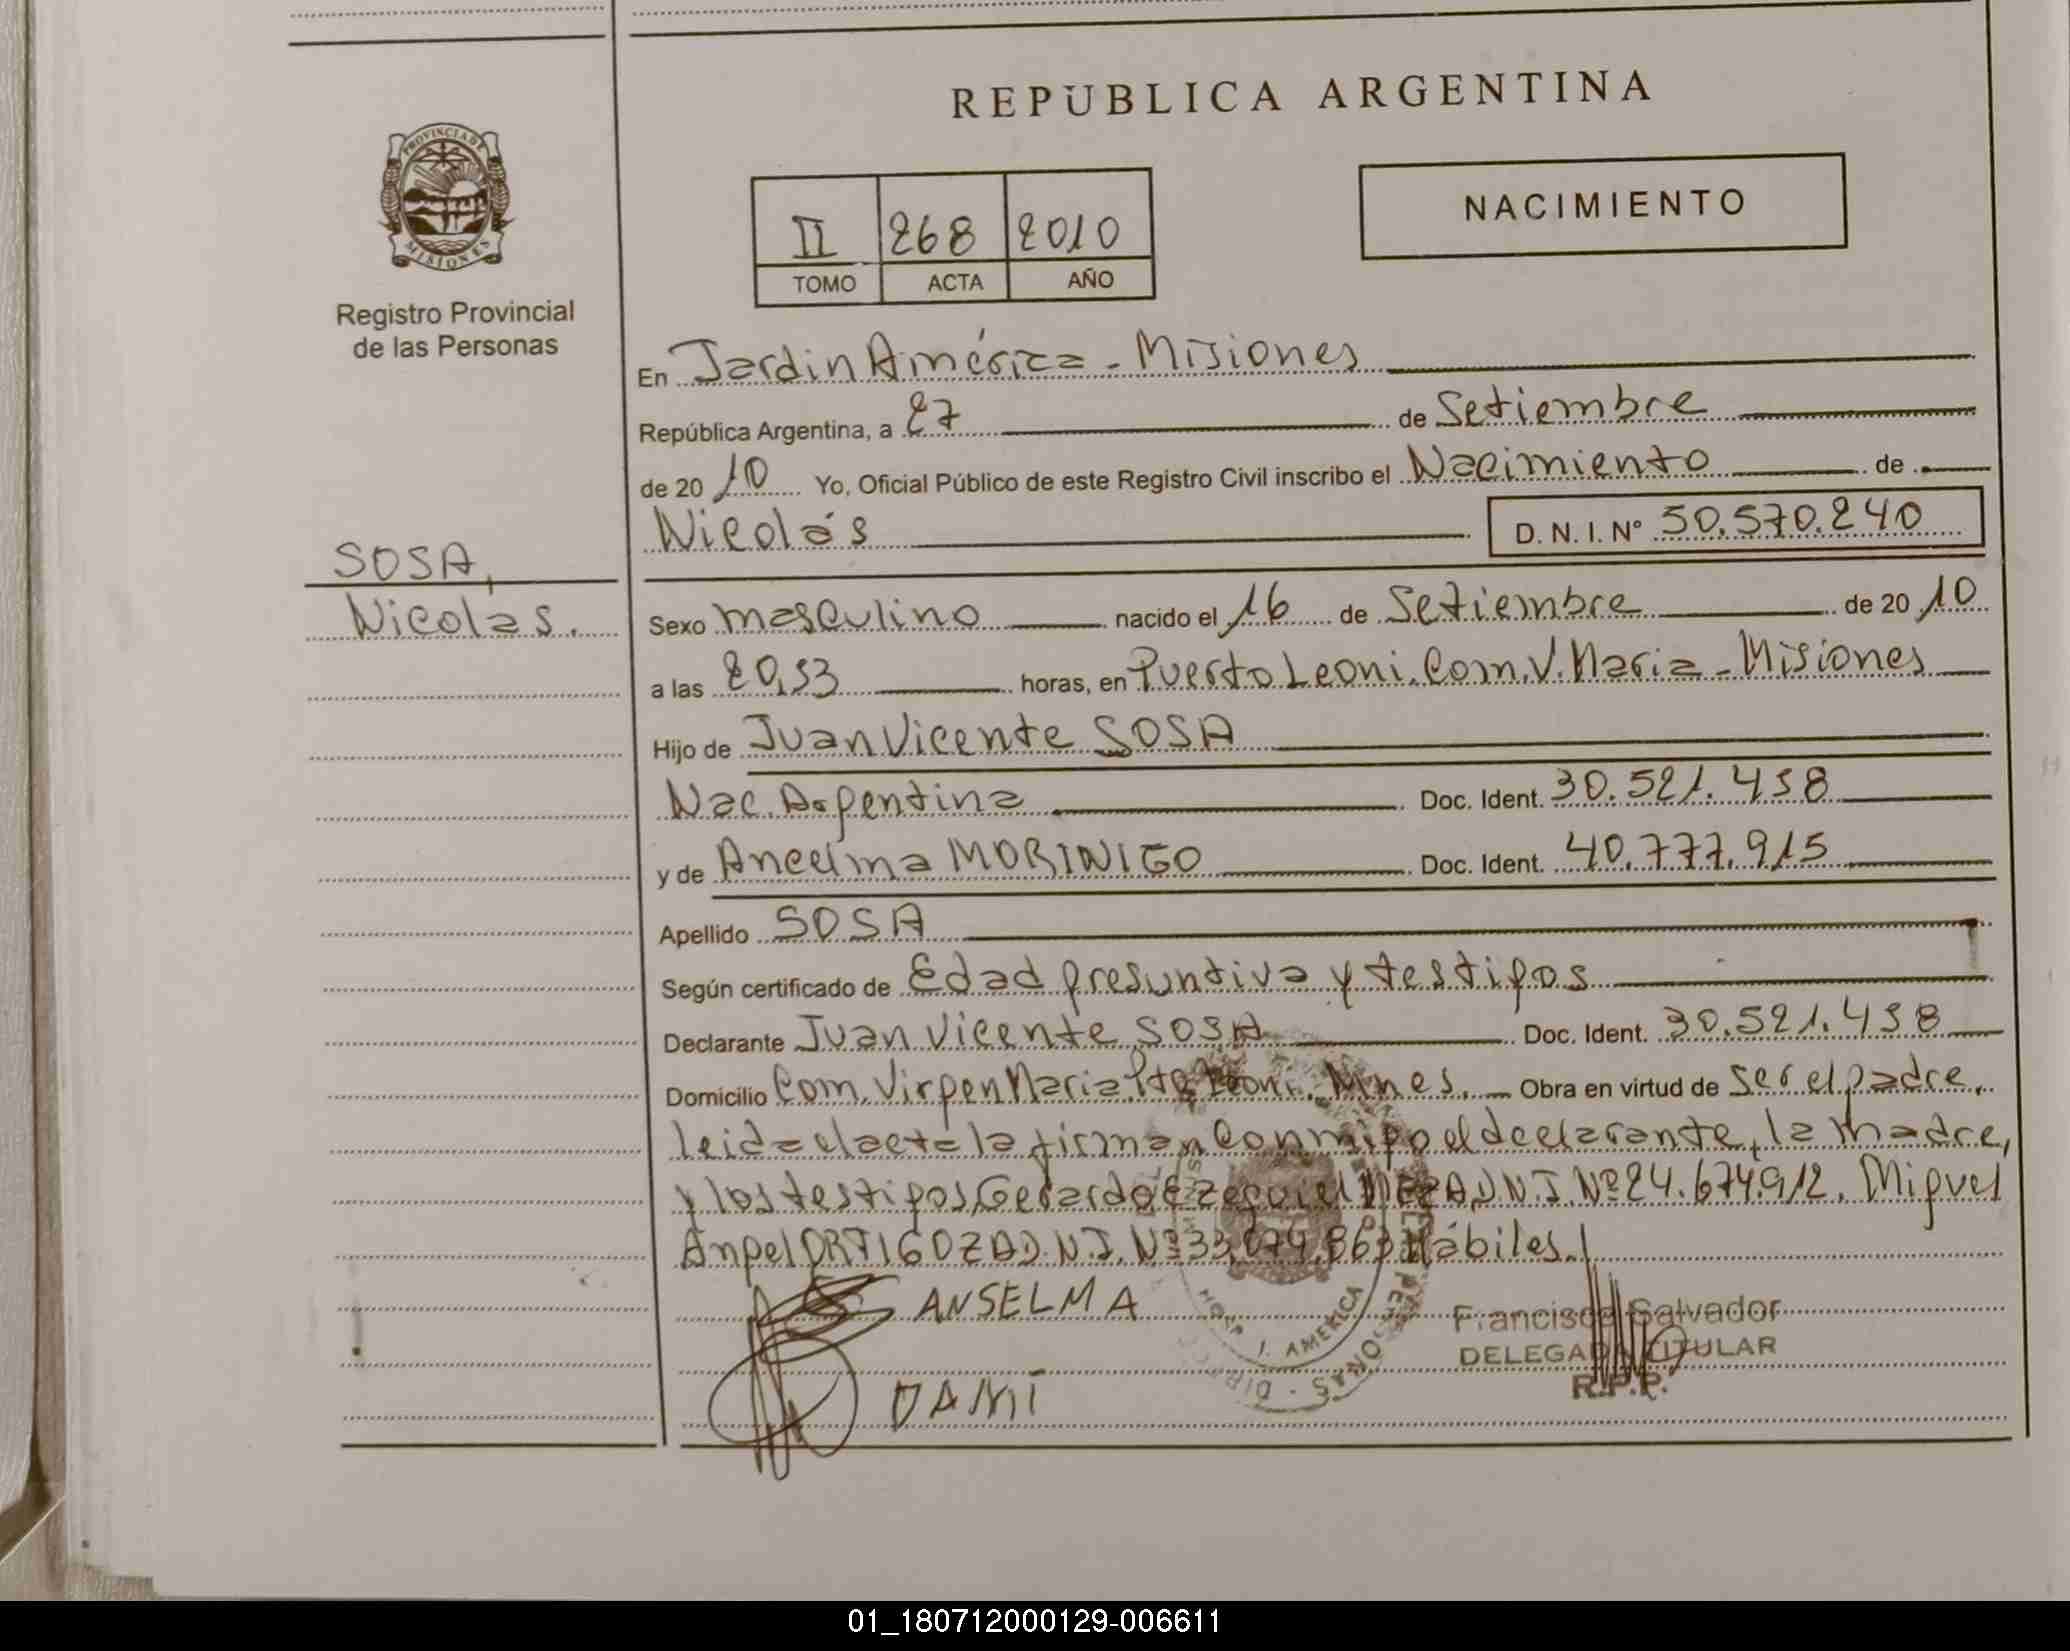 REPUBLICA ARGENTINA
PROVINCIA DE
MISIONES
Registro Provincial
de las Personas
NACIMIENTO
II 268 2010
TOMO ACTA AÑO
En Jardin América - Misiones
República Argentina, a 27 de Setiembre
de 2010 Yo, Oficial Público de este Registro Civil inscribo el Nacimiento de
Nicolás D. N. I. Nº 50.570.240
SOSA,
Nicolas.
Sexo masculino nacido el 16 de Setiembre de 2010
a las 20,53 horas, en Puerto Leoni. Com. V. Maria - Misiones
Hijo de Juan Vicente SOSA
Nac. Argentina Doc. Ident. 30.521.458
y de Ancelma MORINIGO Doc. Ident. 40.777.915
Apellido SOSA
Según certificado de Edad presuntiva y testigos
Declarante Juan Vicente SOSA Doc. Ident. 30.521.458
Domicilio Com. Virgen Maria. Pto Leoni. Mnes. Obra en virtud de ser el padre,
leida el acta la firman conmigo el declarante, la madre,
y los testigos, Gerardo Ezequiel MEZA, D.N.I. Nº 24.674.912. Miguel
Angel ORTIGOZA D.N.I. Nº 33.074.863 Hábiles.
ANSELMA
DAMI
J. AMERICA
Francisca Salvador
DELEGADA TITULAR
R.P.P.
01_180712000129-006611